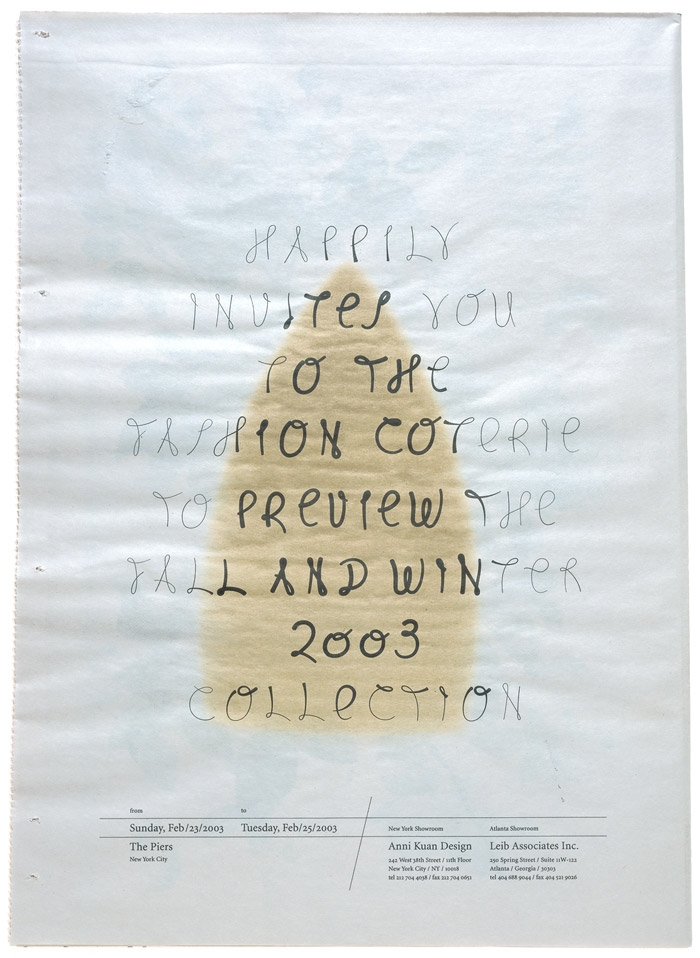 HAPPILY
INVITES YOU
TO THE
FASHION COTERIE
TO PREVIEW THE
FALL AND WINTER
2003
COLLECTION
from to
Sunday, Feb/23/2003 Tuesday, Feb/25/2003
The Piers
New York City
New York Showroom
Anni Kuan Design
242 West 38th Street / 11th Floor
New York City / NY / 10018
tel 212 704 4038 / fax 212 704 0651
Atlanta Showroom
Leib Associates Inc.
250 Spring Street / Suite 11W-122
Atlanta / Georgia / 30303
tel 404 688 9044 / fax 404 521 9026